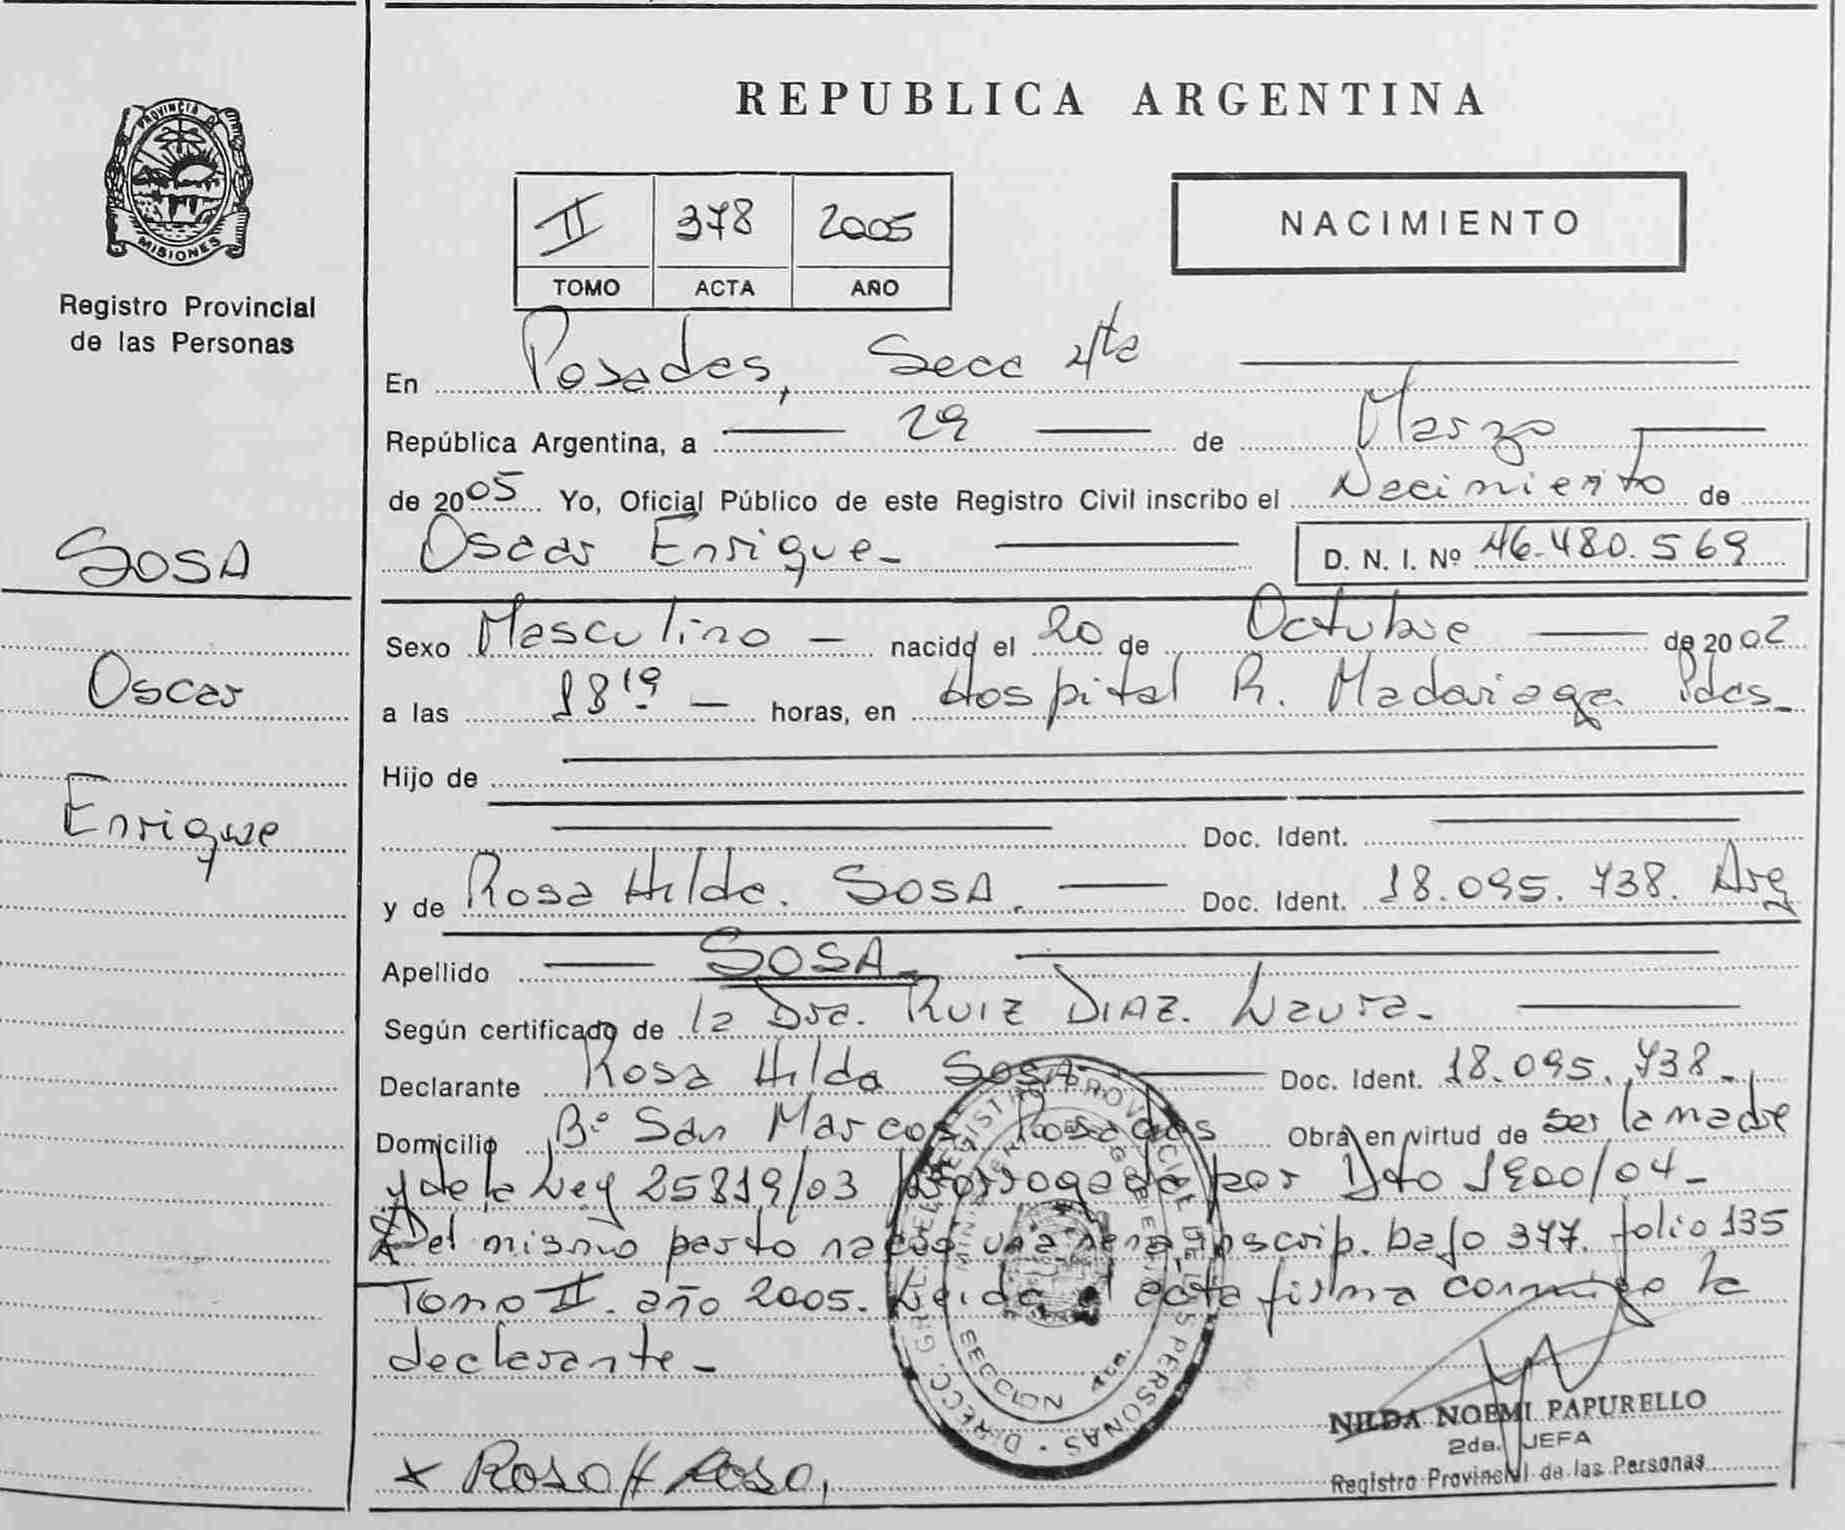 PROVINCIA D
MISIONES
Registro Provincial
de las Personas
SOSA
Oscar
Enrique
REPUBLICA ARGENTINA
II 378 2005
TOMO ACTA AÑO
NACIMIENTO
En Posadas, Secc 4ta
República Argentina, a 29 de Marzo
de 2005 Yo, Oficial Público de este Registro Civil inscribo el Nacimiento de
Oscar Enrique- D. N. I. Nº 46.480.569
Sexo Masculino - nacido el 20 de Octubre de 2002
a las 18 19 - horas, en Hospital R. Madariaga Pdas-
Hijo de
Doc. Ident.
y de Rosa Hilda. SOSA. Doc. Ident. 18.095.738. Arg
Apellido SOSA-
Según certificado de la Dra. RUIZ DIAZ. Laura-
Declarante Rosa Hilda SOSA Doc. Ident. 18.095.738-
Domicilio Bº San Marcos Posadas Obra en virtud de ser la madre
y de la Ley 25819/03 Prorrogada por Dto 1900/04-
Del mismo parto nació una nena inscrip. bajo 377. folio 135
Tomo II. año 2005. Leída el acta firma conmigo la
declarante-
REGISTRO PROVINCIAL DE LAS PERSONAS · DIRECC. GRAL. DEL
MINISTERIO DE GOBIERNO
SECCION 4ta.
x ROSA H SOSA,
NILDA NOEMI PAPURELLO
2da. JEFA
Registro Provincial de las Personas